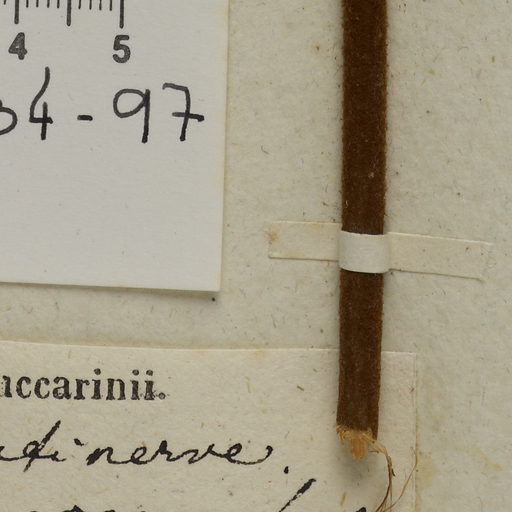 4 5
34-97
uccarinii.
adinerve.